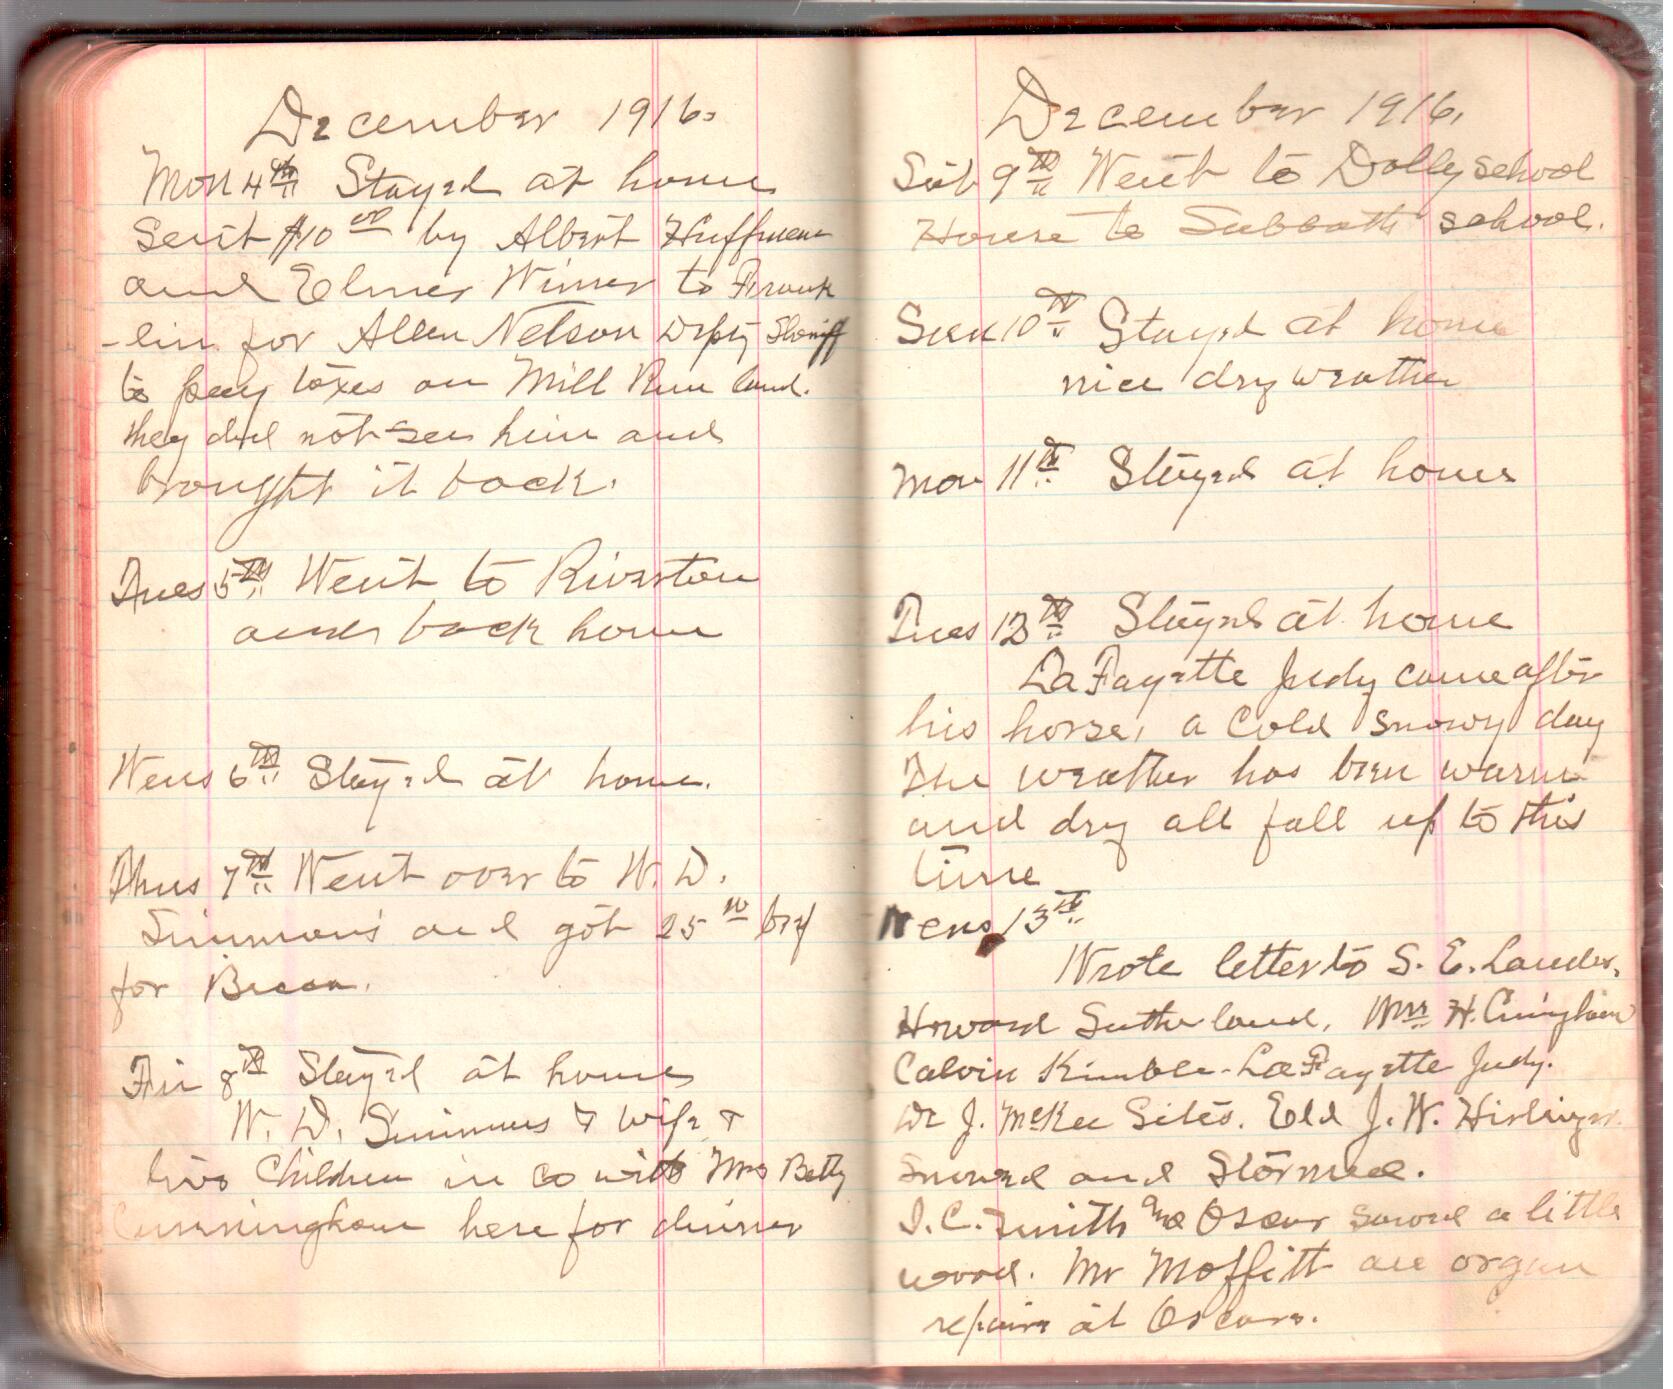 December 1916.
Mon 4th Stayed at home
Sent $10 00 by Albert Huffman
and Elmer Wimer to Frank
-lin for Allen Nelson Depty Sheriff
to pay taxes on Mill Run land.
they did not see him and
brought it back.
Tues 5th Went to Riverton
and back home
Wens 6th Stayed at home.
Thus 7th Went over to W. D.
Simmons and got 25 lb bef
for Bacon.
Fri 8th Stayed at home
W. D. Simmons & wife &
two Children in co with Mrs Betty
Cunningham here for dinner
December 1916.
Sat 9th Went to Dolly school
House to Sabbath school.
Sun 10th Stayed at home
nice dry weather
Mon 11th Stayed at home
Tues 12th Stayed at home
LaFayette Judy came after
his horse, a Cold snowy day
The weather has been warm
and dry all fall up to this
time
Wens 13th
Wrote letter to S. E.
Howard Sutherland, H. Cuningham
Calvin Kimble - LaFayette Judy.
Dr J. McKee Sites. Eld J. W.
Snowed and Stormed.
I. C. Smith and Oscar sawed a little
wood. Mr Moffitt an organ
repairer at Oscars.